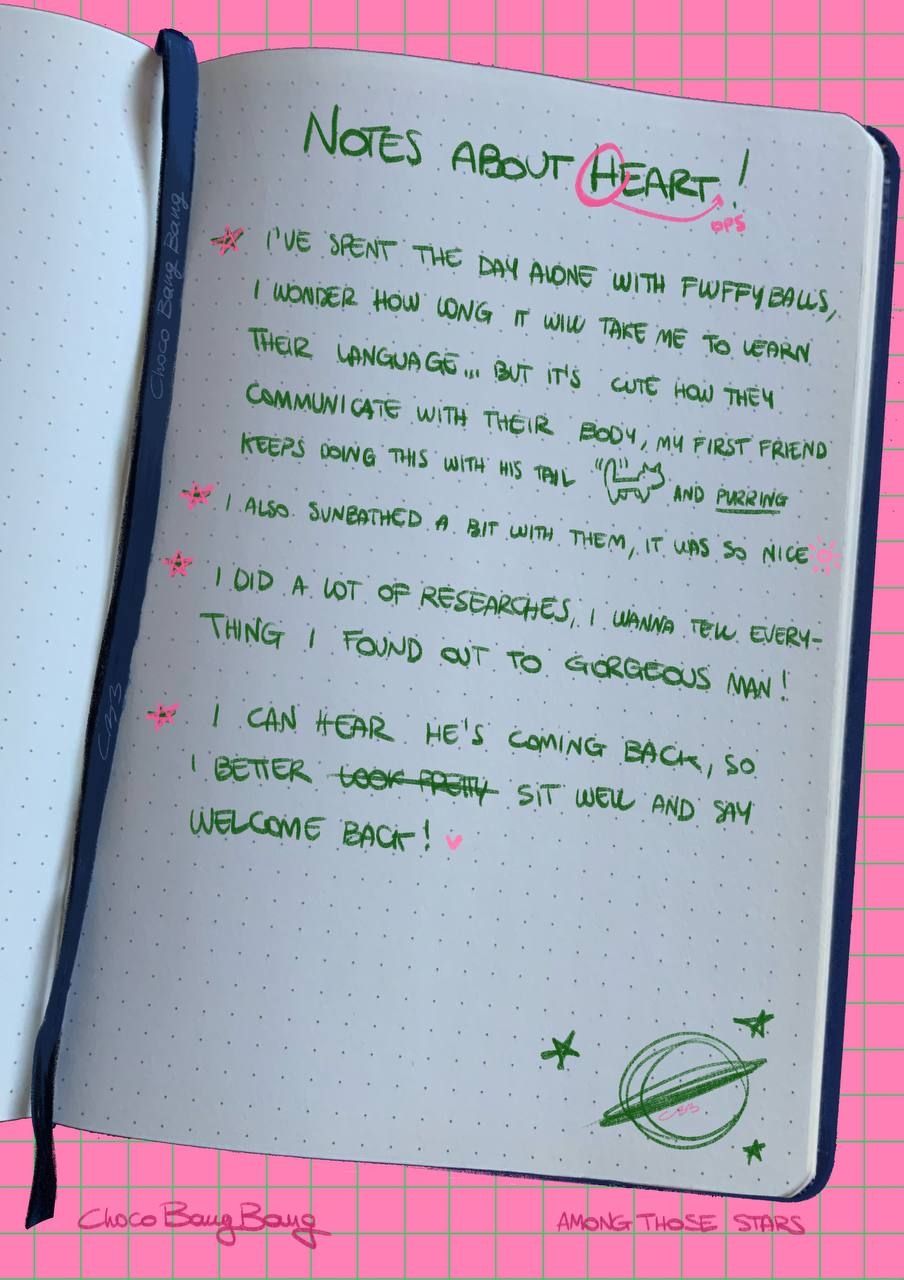 NOTES ABOUT HEART!
OPS
I'VE SPENT THE DAY ALONE WITH FLUFFYBALLS,
I WONDER HOW LONG IT WILL TAKE ME TO LEARN
THEIR LANGUAGE... BUT IT'S CUTE HOW THEY
COMMUNICATE WITH THEIR BODY, MY FIRST FRIEND
KEEPS DOING THIS WITH HIS TAIL AND PURRING
I ALSO SUNBATHED A BIT WITH THEM, IT WAS SO NICE
I DID A LOT OF RESEARCHES, I WANNA TELL EVERY-
THING I FOUND OUT TO GORGEOUS MAN!
I CAN HEAR HE'S COMING BACK, SO
I BETTER LOOK PRETTY SIT WELL AND SAY
WELCOME BACK! ♥
Choco Bang Bang
CBB
CBB
Choco Bang Bang
AMONG THOSE STARS